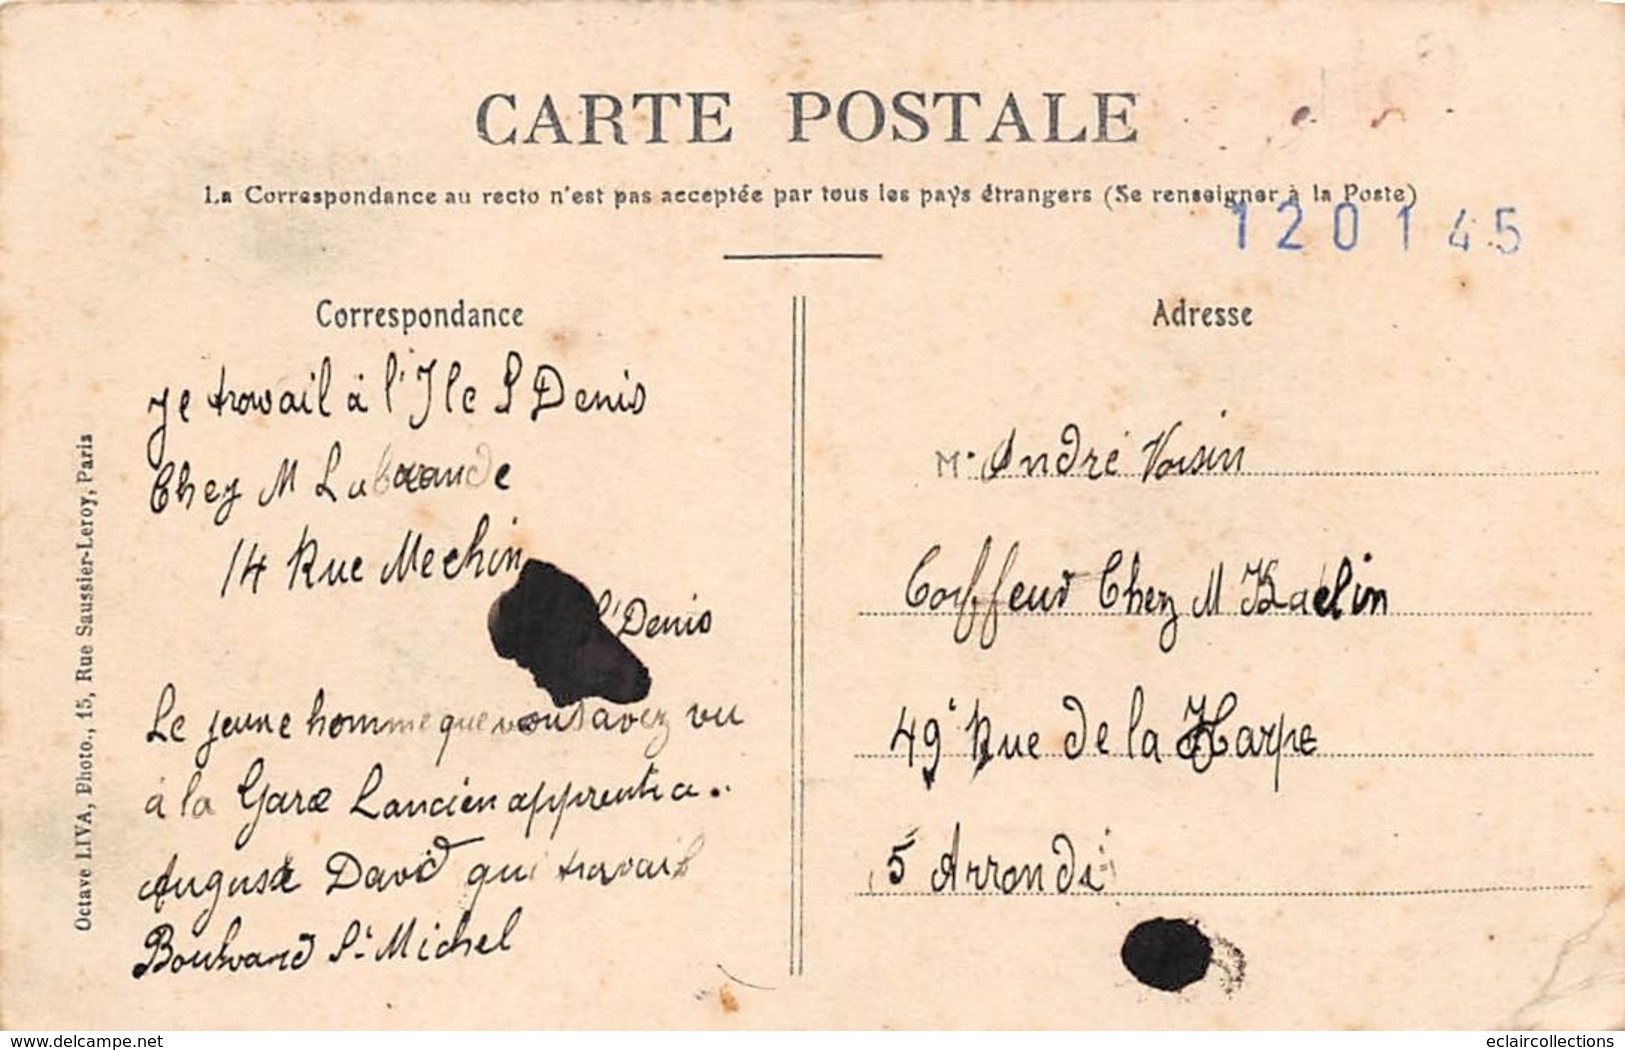 CARTE POSTALE
La Correspondance au recto n'est pas acceptée par tous les pays étrangers (Se renseigner à la Poste)
120145
Correspondance
Je travail à l'Ile St Denis
Chez M
14 Rue Mechin
Denis
Le jeune homme que vous avez vu
à la Gare Lancien apprenti a..
Auguste David qui travail
Boulvard St Michel
Octave LIVA, Photo., 15, Rue Saussier-Leroy, Paris
Adresse
Mr André Voisin
Coiffeur Chez M Kaelin
49 Rue de la Harpe
5 Arrondi
www.delcampe.net
eclaircollections